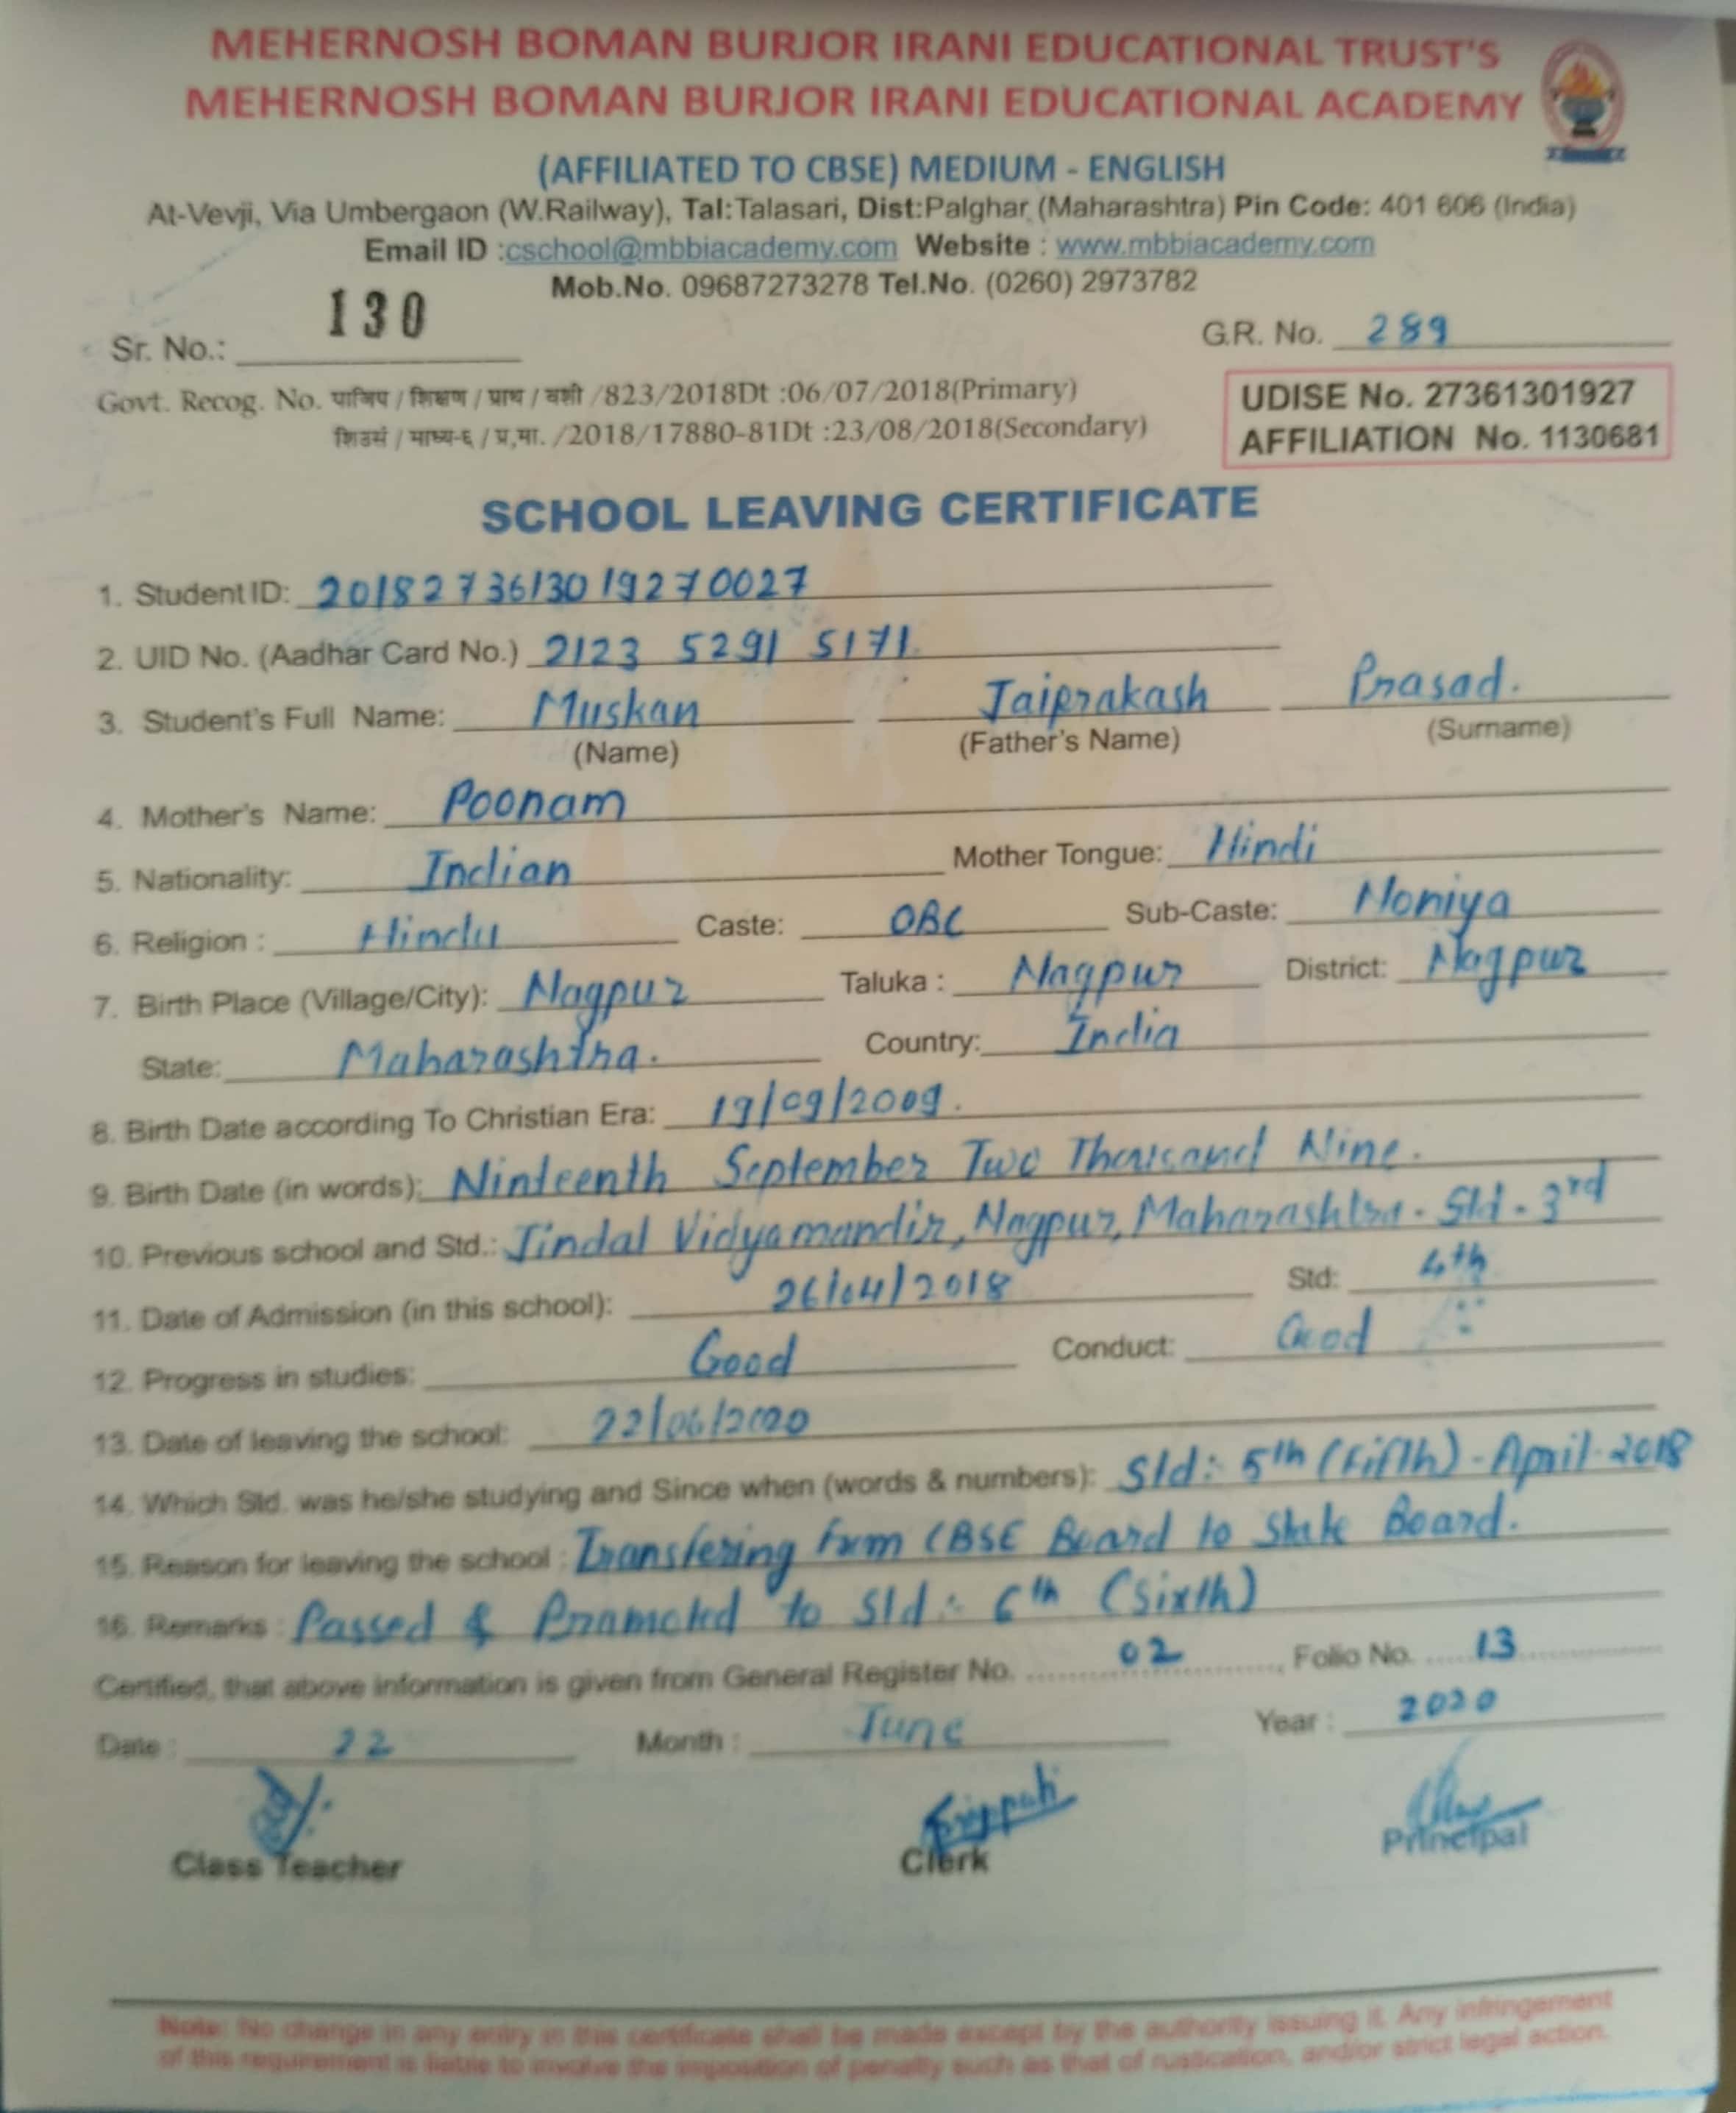 MEHERNOSH BOMAN BURJOR IRANI EDUCATIONAL TRUST'S
MEHERNOSH BOMAN BURJOR IRANI EDUCATIONAL ACADEMY
(AFFILIATED TO CBSE) MEDIUM - ENGLISH
At-Vevji, Via Umbergaon (W.Railway), Tal:Talasari, Dist:Palghar (Maharashtra) Pin Code: 401 606 (India)
Email ID :cschool@mbbiacademy.com Website : www.mbbiacademy.com
Mob.No. 09687273278 Tel.No. (0260) 2973782
Sr. No.: 130 G.R. No. 289
Govt. Recog. No. पाजिप / शिक्षण / प्राथ / वशी /823/2018Dt :06/07/2018(Primary)
शिउसं / माध्य-६ / प्र,मा. /2018/17880-81Dt :23/08/2018(Secondary)
UDISE No. 27361301927
AFFILIATION No. 1130681
SCHOOL LEAVING CERTIFICATE
1. Student ID: 2018273613019270027
2. UID No. (Aadhar Card No.) 2123 5291 5171
3. Student's Full Name: Muskan Jaiprakash Prasad.
(Name) (Father's Name) (Surname)
4. Mother's Name: Poonam
5. Nationality: Indian Mother Tongue: Hindi
6. Religion : Hindu Caste: OBC Sub-Caste: Noniya
7. Birth Place (Village/City): Nagpur Taluka : Nagpur District: Nagpur
State: Maharashtra. Country: India
8. Birth Date according To Christian Era: 19/09/2009.
9. Birth Date (in words): Ninteenth September Two Thousand Nine.
10. Previous school and Std.: Jindal Vidyamandir, Nagpur, Maharashtra. Std - 3rd
11. Date of Admission (in this school): 26/04/2018 Std: 4th
12. Progress in studies: Good Conduct: Good
13. Date of leaving the school: 22/06/2020
14. Which Std. was he/she studying and Since when (words & numbers): Std:- 5th (Fifth) - April-2018
15. Reason for leaving the school : Transfering from CBSE Board to State Board.
16. Remarks : Passed & Promoted to Std:- 6th (Sixth)
Certified, that above information is given from General Register No. 02 Folio No. 13
Date : 22 Month : June Year : 2020
Class Teacher Clerk Principal
Note: No change in any entry in this certificate shall be made except by the authority issuing it. Any infringement
of this requirement is liable to involve the imposition of penalty such as that of rustication, and/or strict legal action.